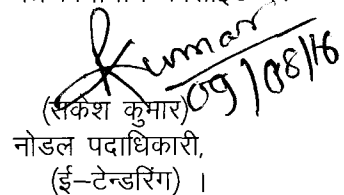 Kumar
09/08/16
(राकेश कुमार)
नोडल पदाधिकारी,
(ई–टेन्डरिंग) ।